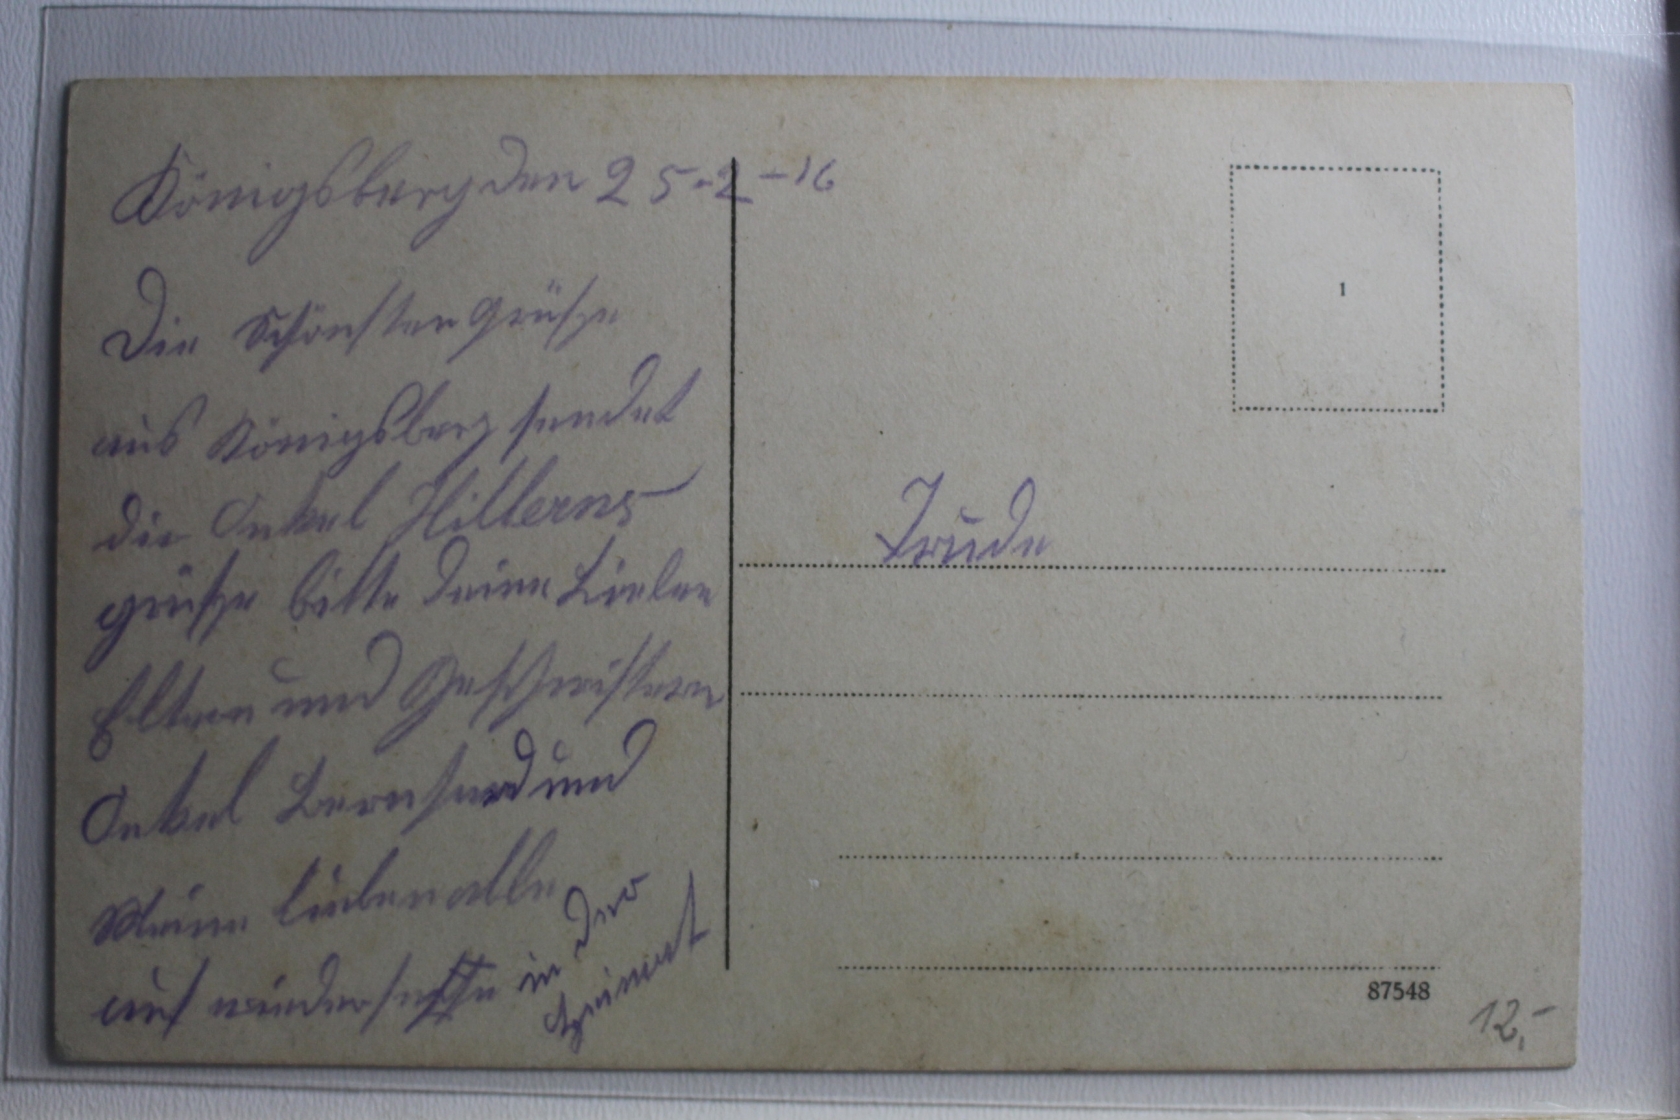 Königsberg den 25-2-16
Die Schönsten Grüße
aus Königsberg sendet
die Onkel
grüße bitte deine Lieben
Eltern und Geschwistern
Onkel Bernhard und
Meine lieben alle
auf wiedersehn in der
Heimat
Trude
1
87548
12,-